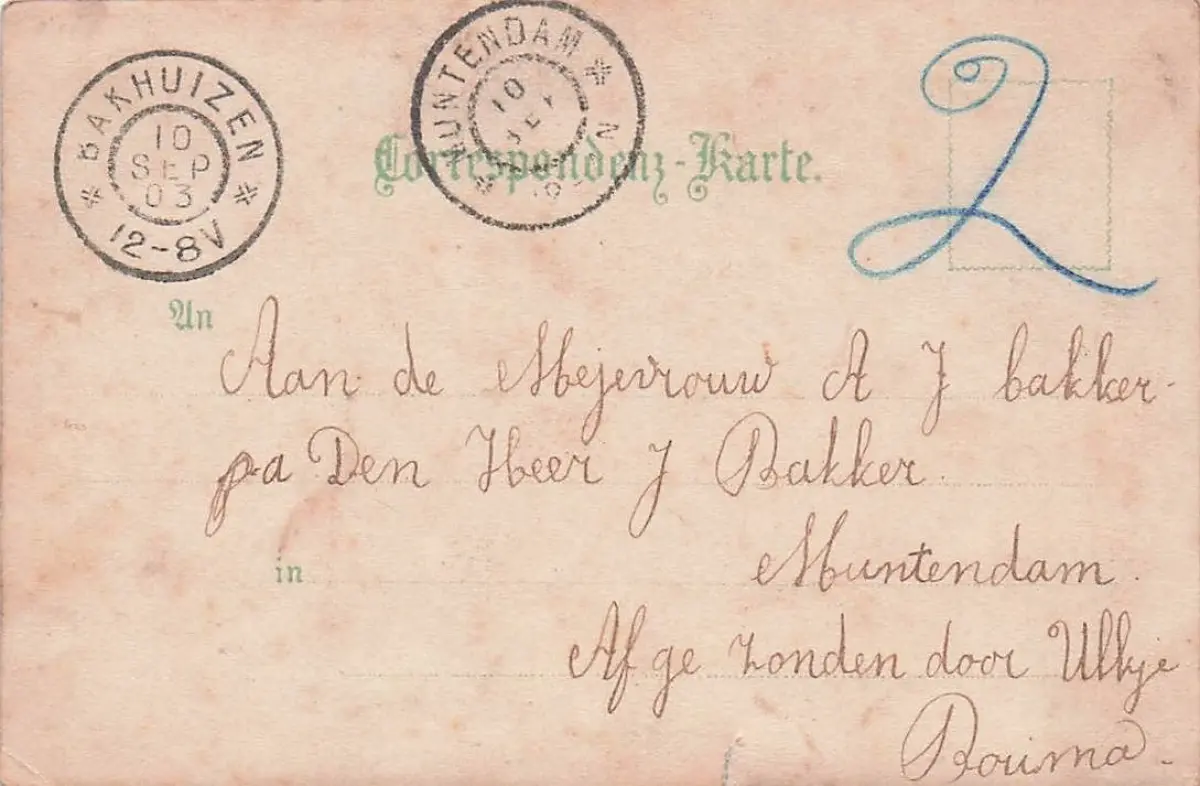 BAKHUIZEN
10
SEP
03
12-8V
MUNTENDAM
10
SEP
N
2
Correspondenz-Karte.
An
Aan de Mejevrouw A J bakker-
pa Den Heer J Bakker.
in
Muntendam.
Afge zonden door Ulkje
Bouma.